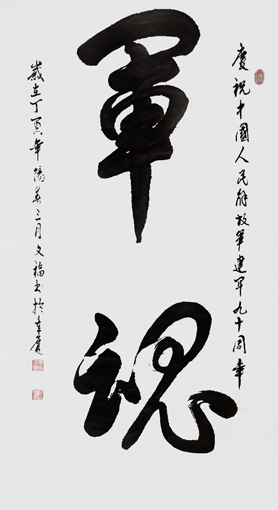 慶祝中國人民解放軍建軍九十周年
軍魂
歲在丁酉年陽春三月文福书於重慶